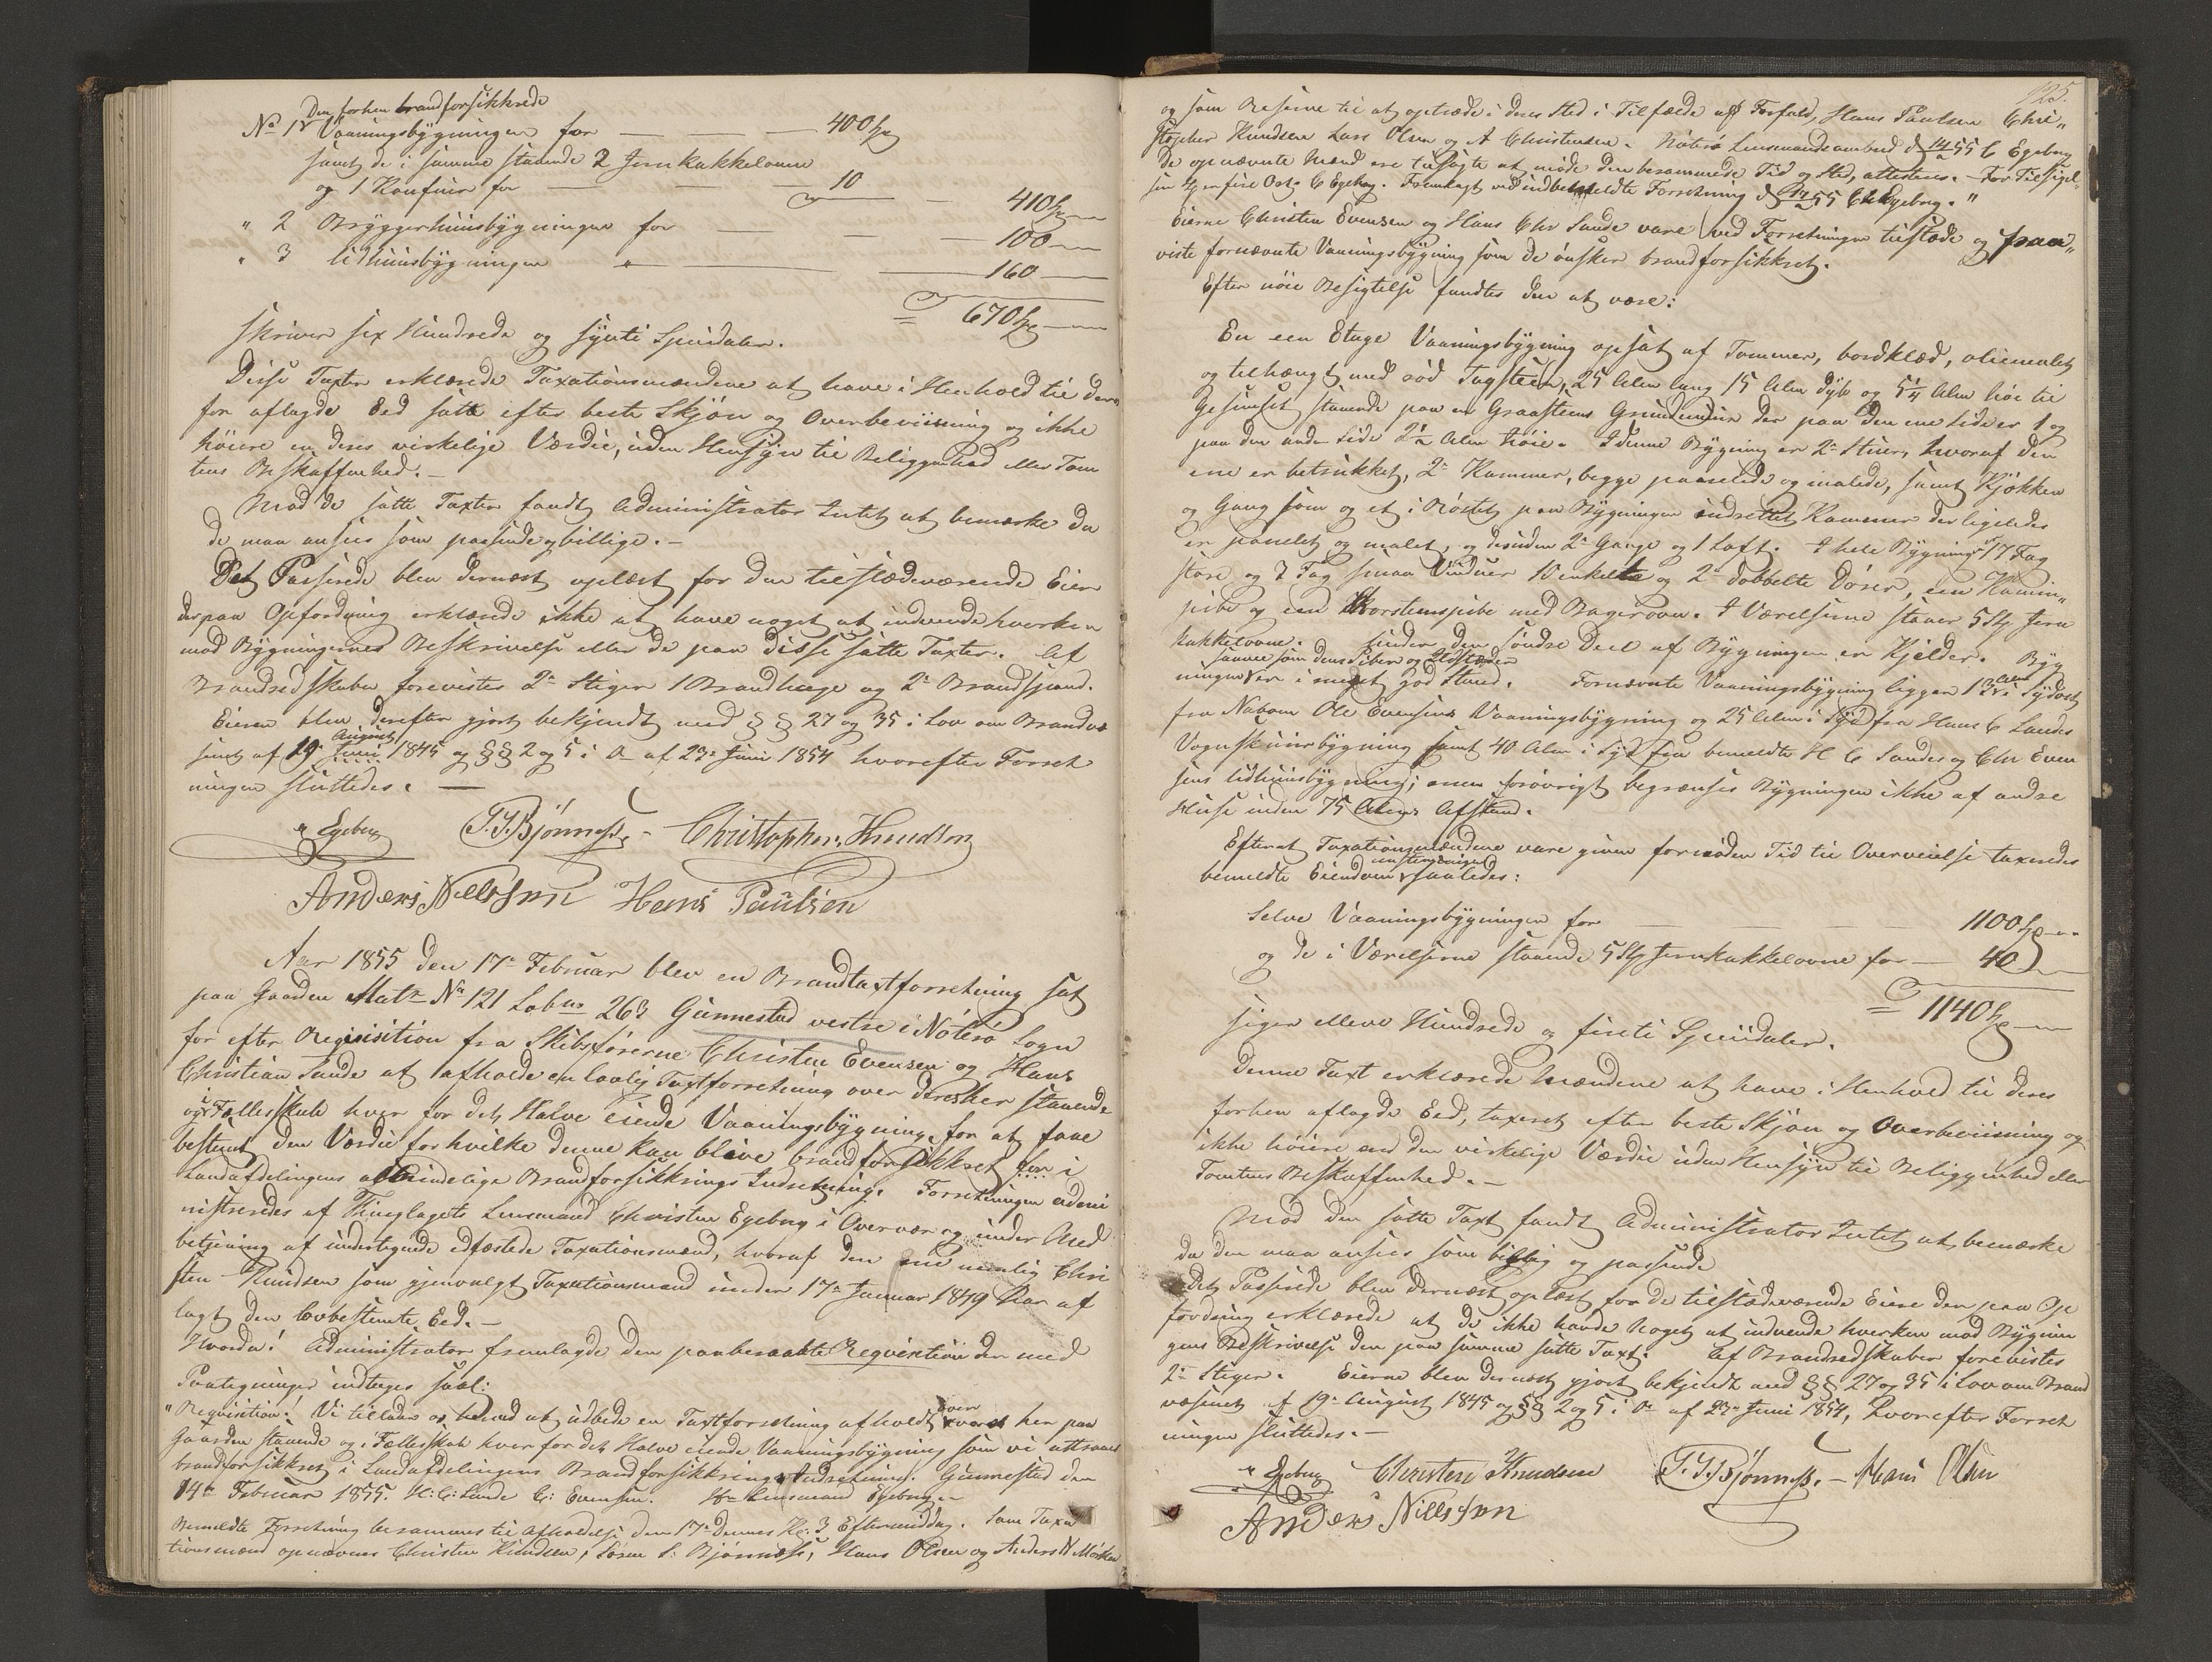 Den forhen brandforsikkrede
No 1 Vaaningsbygningen for — — — 400 Spd
samt de i samme staaende 2 Jernkakkelovne
og 1 Komfuir for — — — 10
410 Spd
" 2 Bryggerhuusbygningen for — — — 100
" 3 Udhuusbygningen " — — 160
= 670 Spd
skriver sex Hundrede og sytti Speidaler.
Disse Taxter erklærede Taxationsmændene at have i Henhold til deres
for aflagde Eed satte efter beste Skjøn og Overbeviisning og ikke
høiere en deres virkelige Værdie, uden Hensyn til Beliggenhed eller Tom
tens Beskaffenhed.—
Mod de satte Taxter fandt Administrator Intet at bemærke da
de maa ansees som passende og billige.—
Det Passerede blev dernæst oplæst for den tilstædeværende Eier
der paa Opfordring erklærede ikke at have noget at indvende hverken
mod Bygningernes Beskrivelse eller de paa disse satte Taxter. Af
Brandredskaber forevistes 2 Stiger 1 Brandhage og 2 Brandspand.
Eieren blev derefter gjort bekjendt med §§ 27 og 35 i Lov om Brandvæ
August
senet af 19 Juni 1845 og §§ 2 og 5 i do af 23 Juni 1854 hvorefter Forret
ningen sluttedes.—
Egeberg T. S. Bjønnes.- Christopher Knudsen
Anders Nillssøn Hans Paulsen
Aar 1855 den 17 Februar blev en Brandtaxtforretning sat
paa Gaarden Matr No 121 Løbno 263 Gunnestad vestre i Nøterø Sogn
for efter Reqvisition fra Skibsførerne Christen Evensen og Hans
Christian Sande at afholde en lovlig Taxtforretning over deres her staaende
og i Fællesskab hver for det Halve eiende Vaaningsbygning, for at faae
bestemt den Værdie for hvilke denne kan blive brandforsikkret for i
Landafdelingens almindelige Brandforsikkrings Indretning. Forretningen admi
nistreredes af Thinglagets Lensmand Christen Egeberg i Overvær og under Med
betjening af undertegnede edfæstede Taxationsmænd, hvoraf den ene nemlig Chri
sten Knudsen som gjenvalgt Taxationsmand under 17 Januar 1849 har af
lagt den lovbestemte Eed.—
Hvorda! Administrator fremlagde den paaberaabte Reqvisition der med
Paategninger indtages saal:
"Reqvisition! Vi tillader os herved at udbede en Taxtforretning afholdt over vores her paa
Gaarden staaende og i Fællesskab hver for det Halve eiende Vaaningsbygning som vi attraaer
brandforsikkret i Landafdelingens Brandforsikkrings Indretning. Gunnestad den
14 Februar 1855. H: C: Sande C: Evensen. Hr Lensmand Egeberg
Bemeldte Forretning berammes til Afholdelse den 17 dennes Kl: 3 Eftermiddag. Som Taxa
tionsmænd opnævnes Christen Knudsen, Søren S: Bjønnes, Hans Olsen og Anders N Mørken
125.
og som Reserve til at optræde i deres Sted i Tilfælde af Forfald, Hans Paulsen Chri"
stopher Knudsen Lars Olsen og A Christensen. Nøterø Lensmandsembed d 14/2 55 C Egeberg
De opnævnte Mænd ere tilsagte at møde den berammede Tid og Sted, attesteres.—For Tilsigel
sen C Egeberg. Fremlagt ved indbemeldte Forretning d 17/2 55 Ch Egeberg."
Eierne Christen Evensen og Hans Chr Sande vare ved Forretningen tilstæde og paa"
viste fornævnte Vaaningsbygning som de ønsker brandforsikkret.
Efter nøie Besigtelse fandtes den at være:
En een Etage Vaaningsbygning opsat af Tømmer, bordklæd, oliemalet
og tilhængt med rød Tagsteen, 25 Alen lang 15 Alen dyb og 5 1/4 Alen høi til
Gesimset, staaende paa en Graasteens Grundmuur der paa den ene Side er 1 og
paa den anden Side 2 1/2 Alen høie. I denne Bygning er 2 Stuer, hvoraf den
ene er betrækket, 2 Kammer, begge panelede og malede, samt Kjøkken
og Gang som og et i Røstet paa Bygningen indrettet Kammer der ligeledes
er panelet og malet, og desuden 2 Gange og 1 Loft. I hele Bygningen er 17 Fag
store og 7 Fag smaa Vinduer 10 enkelte og 2 dobbelte Døre, een Kamin"
pibe og een Skorstenspibe med Bagerovn. I Værelserne staaer 5 Stk Jern
kakkelovne. Under den søndre Deel af Bygningen er Kjelder. Byg
saavel som dens Piber og Ildsteder
ningen er i meget god Stand. Fornævnte Vaaningsbygning ligger 13 Alen i Sydost
fra Naboen Ole Evensens Vaaningsbygning og 25 Alen i Syd fra Hans C Sandes
Vognskuursbygning samt 40 Alen i Syd fra bemeldte H C Sandes og Chr Even
sens Udhuusbygning; men forøvrigt begrændses Bygningen ikke af andre
Huse inden 75 Alens Afstand.
Efterat Taxationsmændene vare given fornøden Tid til Overveielse taxeredes
bemeldte Eiendom saaledes:
Selve Vaaningsbygningen for — — — 1100 Spd
og de i Værelserne staaende 5 Stk Jernkakkelovne for — 40
= 1140 Spd
siger elleve Hundrede og firti Speidaler.
Denne Taxt erklærede Mændene at have i Henhold til deres
forhen aflagde Eed, taxeret efter beste Skjøn og Overbeviisning og
ikke høiere end den virkelige Værdie uden Hensyn til Beliggenhed eller
Tomtens Beskaffenhed.—
Mod den satte Taxt fandt Administrator Intet at bemærke
da den maa ansees som billig og passende
Det Passerede blev dernæst oplæst for de tilstædeværende Eiere der paa Op
fordring erklærede at de ikke havde Noget at indvende hverken mod Bygnin
gens Beskrivelse den paa samme satte Taxt. Af Brandredskaber forevistes
2 Stiger. Eierne blev dernæst gjort bekjendt med §§ 27 og 35 i Lov om Brand
væsenet af 19 August 1845 og §§ 2 og 5 i do af 23 Juni 1854, hvorefter Forret
ningen sluttedes.—
Egeberg Christen Knudsen T. S. Bjønnes.- Hans Olsen
Anders Nillssøn